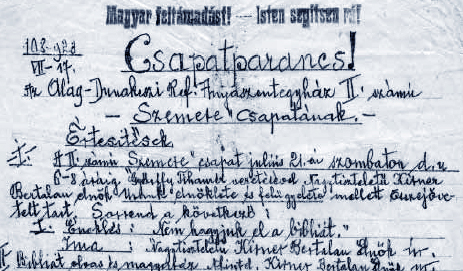 Magyar feltámadást! — Isten segítsen rá!
Csapatparancs!
VII-17.
Az Alag-Dunakeszi Ref. Anyaszentegyház II. számú
— Szemere "Csapatának. —
Értesítések
I. A II. számú Szemere" csapat július 21.-én szombaton d.u.
6-8 óráig Tihamér vezetésével Nagytiszteletű Kirner
Bertalan elnök Urunk elnöklete és felügyelete mellett össejöve-
telt tart. Sorrend a következő:
I. Éneklés: Nem hagyjuk el a bibliát."
Ima: Nagytiszteletű Kirner Bertalan Elnök úr
II. Bibliát olvas és magyaráz Kirner Bertalan Elnök úr